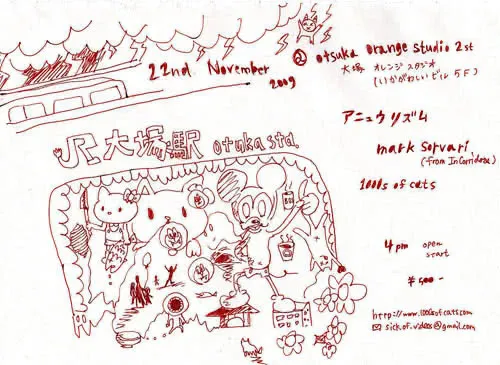 22nd November
2009
@ otsuka orange studio 2st
大塚 オレンジスタジオ
(いかがわしいビル 5F)
アニュウリズム
mark sorvari
(from InCorridors)
1000s of cats
JR大塚駅 otukastd.
4pm open
start
¥500-
http://www.1000sofcats.com
✉ sick.of.vzdeos@gmail.com